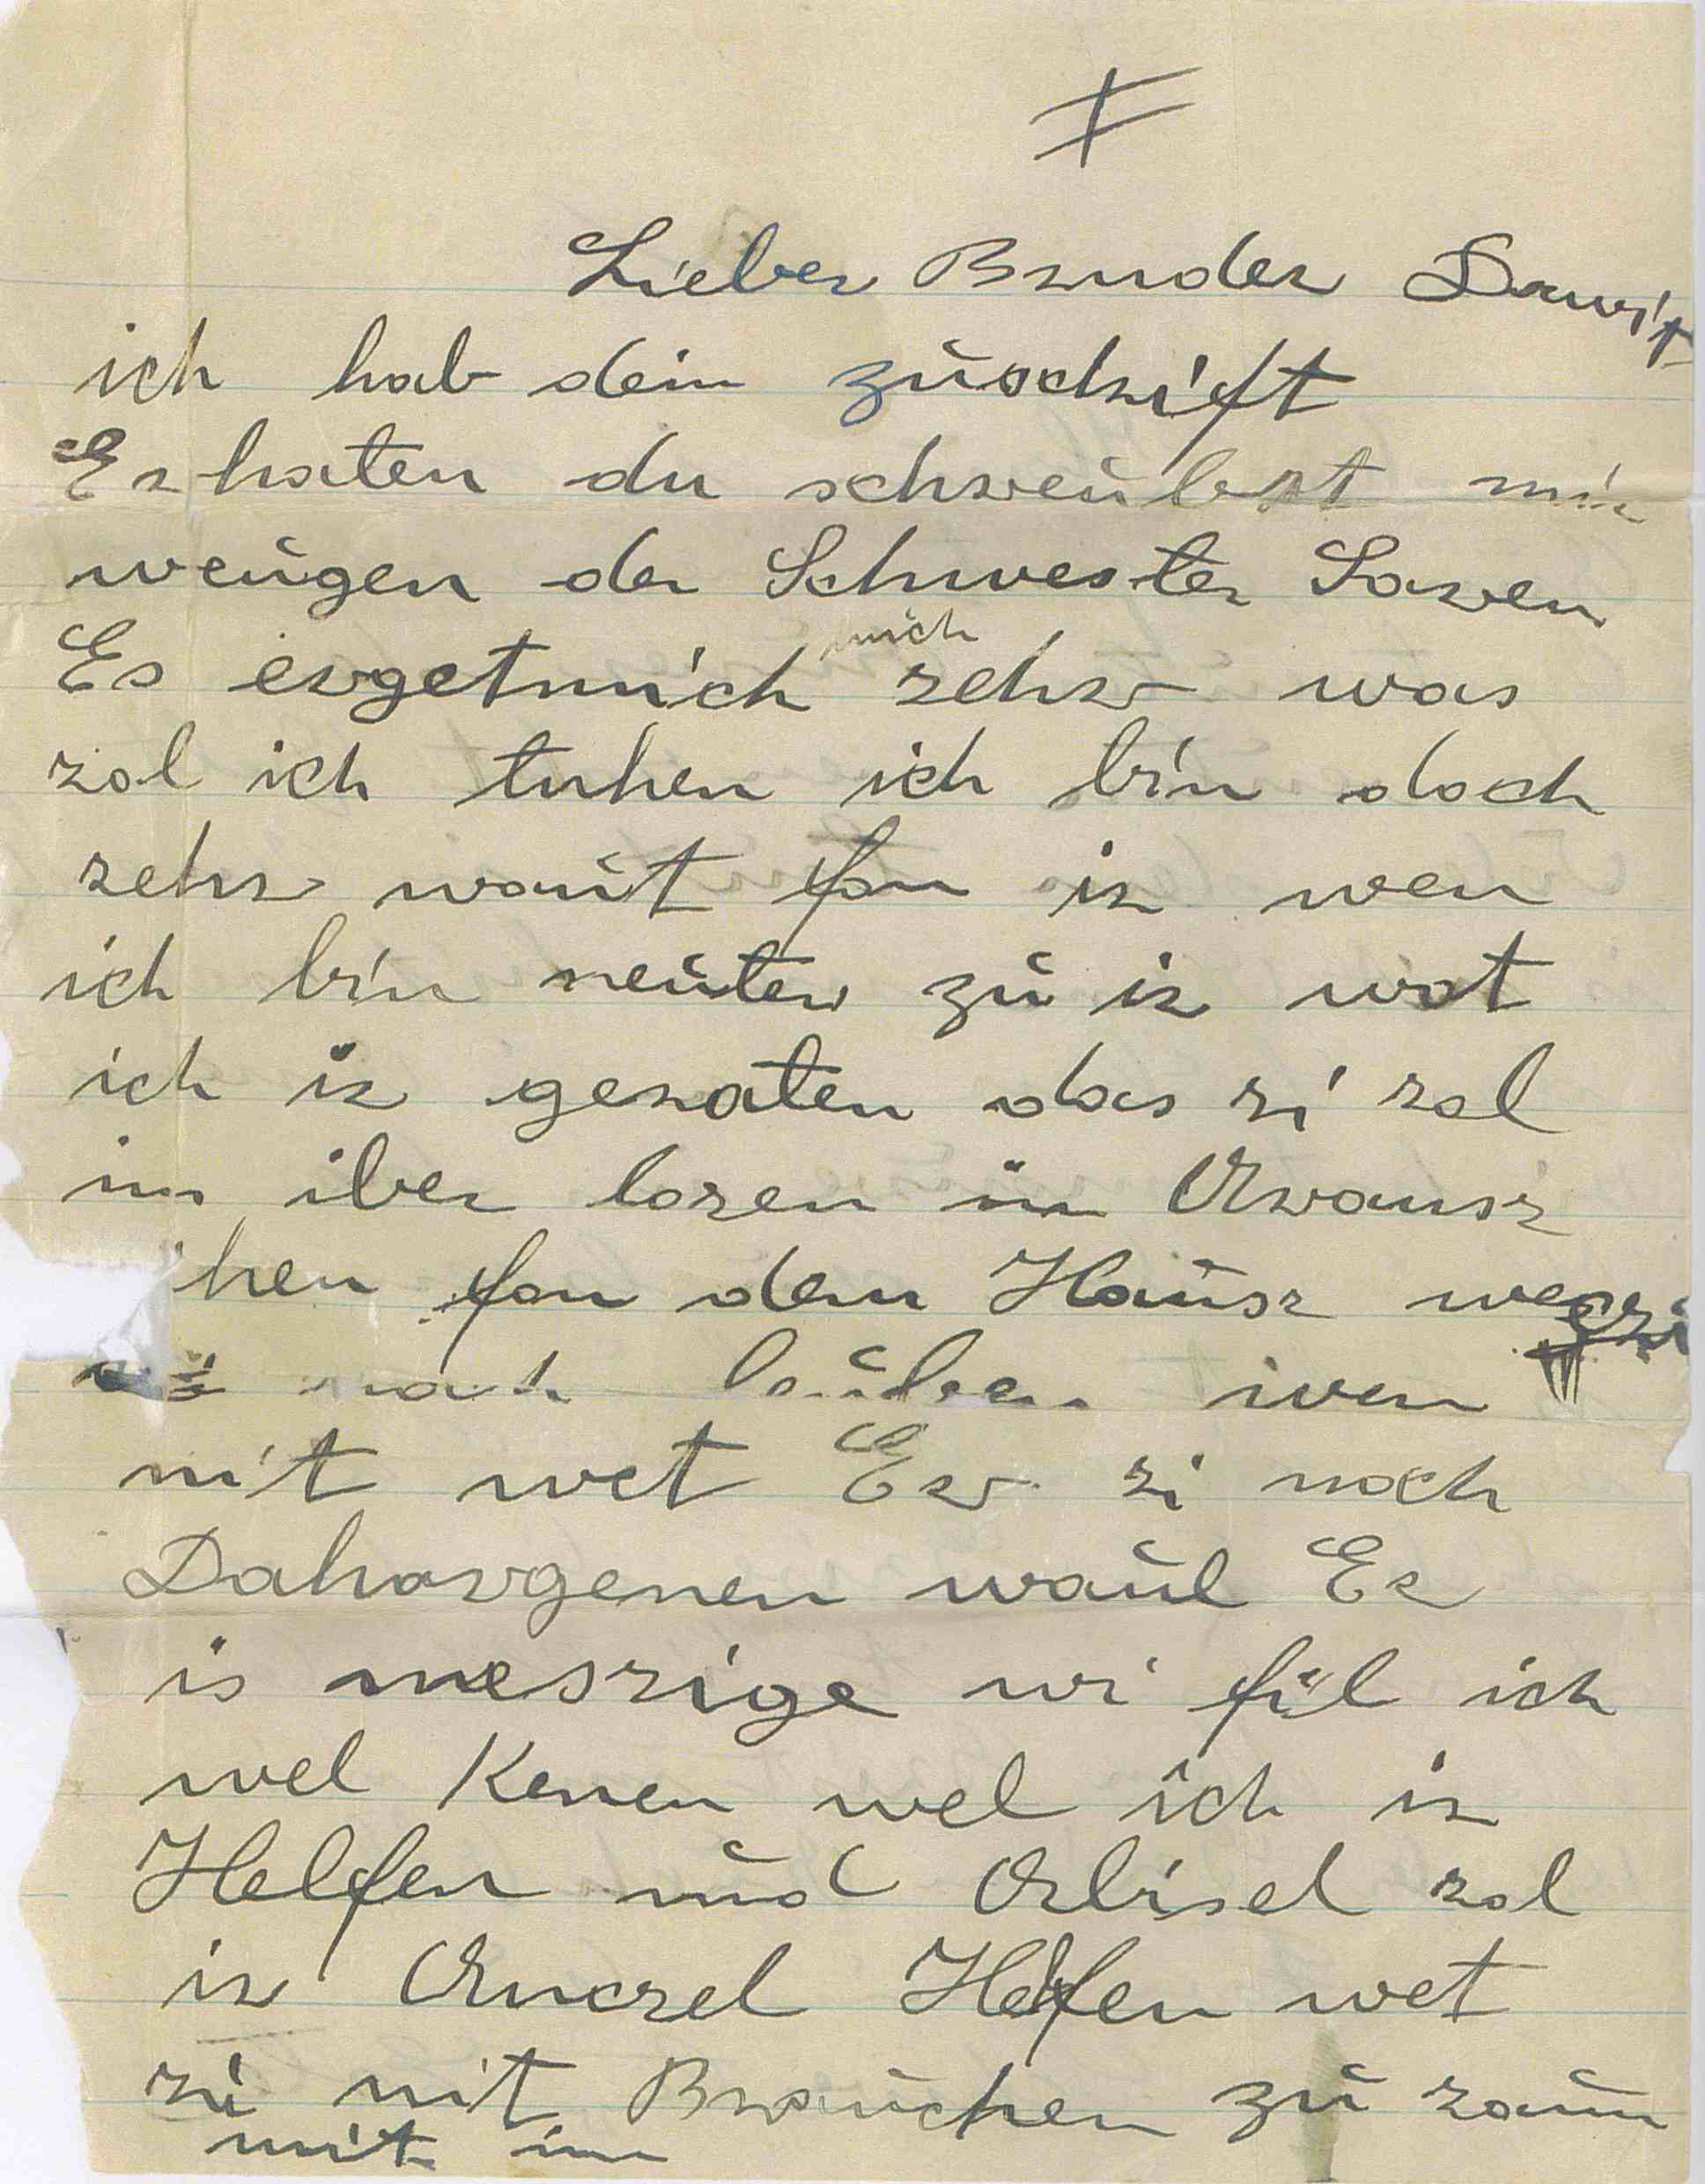 Lieber Bruder Dawit
ich hab dein zuschrift
Erhaten du schreubst mir
weugen der Schwester Saren
mich
Es ergetmich zehr was
zol ich tuhen ich bin doch
zehr waut fon ir wen
ich bin neuter zu ir wot
ich ir geraten das zi zol
im iber lozen un Arausz
hen fon dem Hausz
noch leuben iren
nit wet Er zi noch
Dahargenen waul Er
is meszige wi fil ich
wel Kenen wel ich ir
Helfen und Abisel zol
ir Anczel Helfen wet
zi nit Brauchen zu zaun
mit im